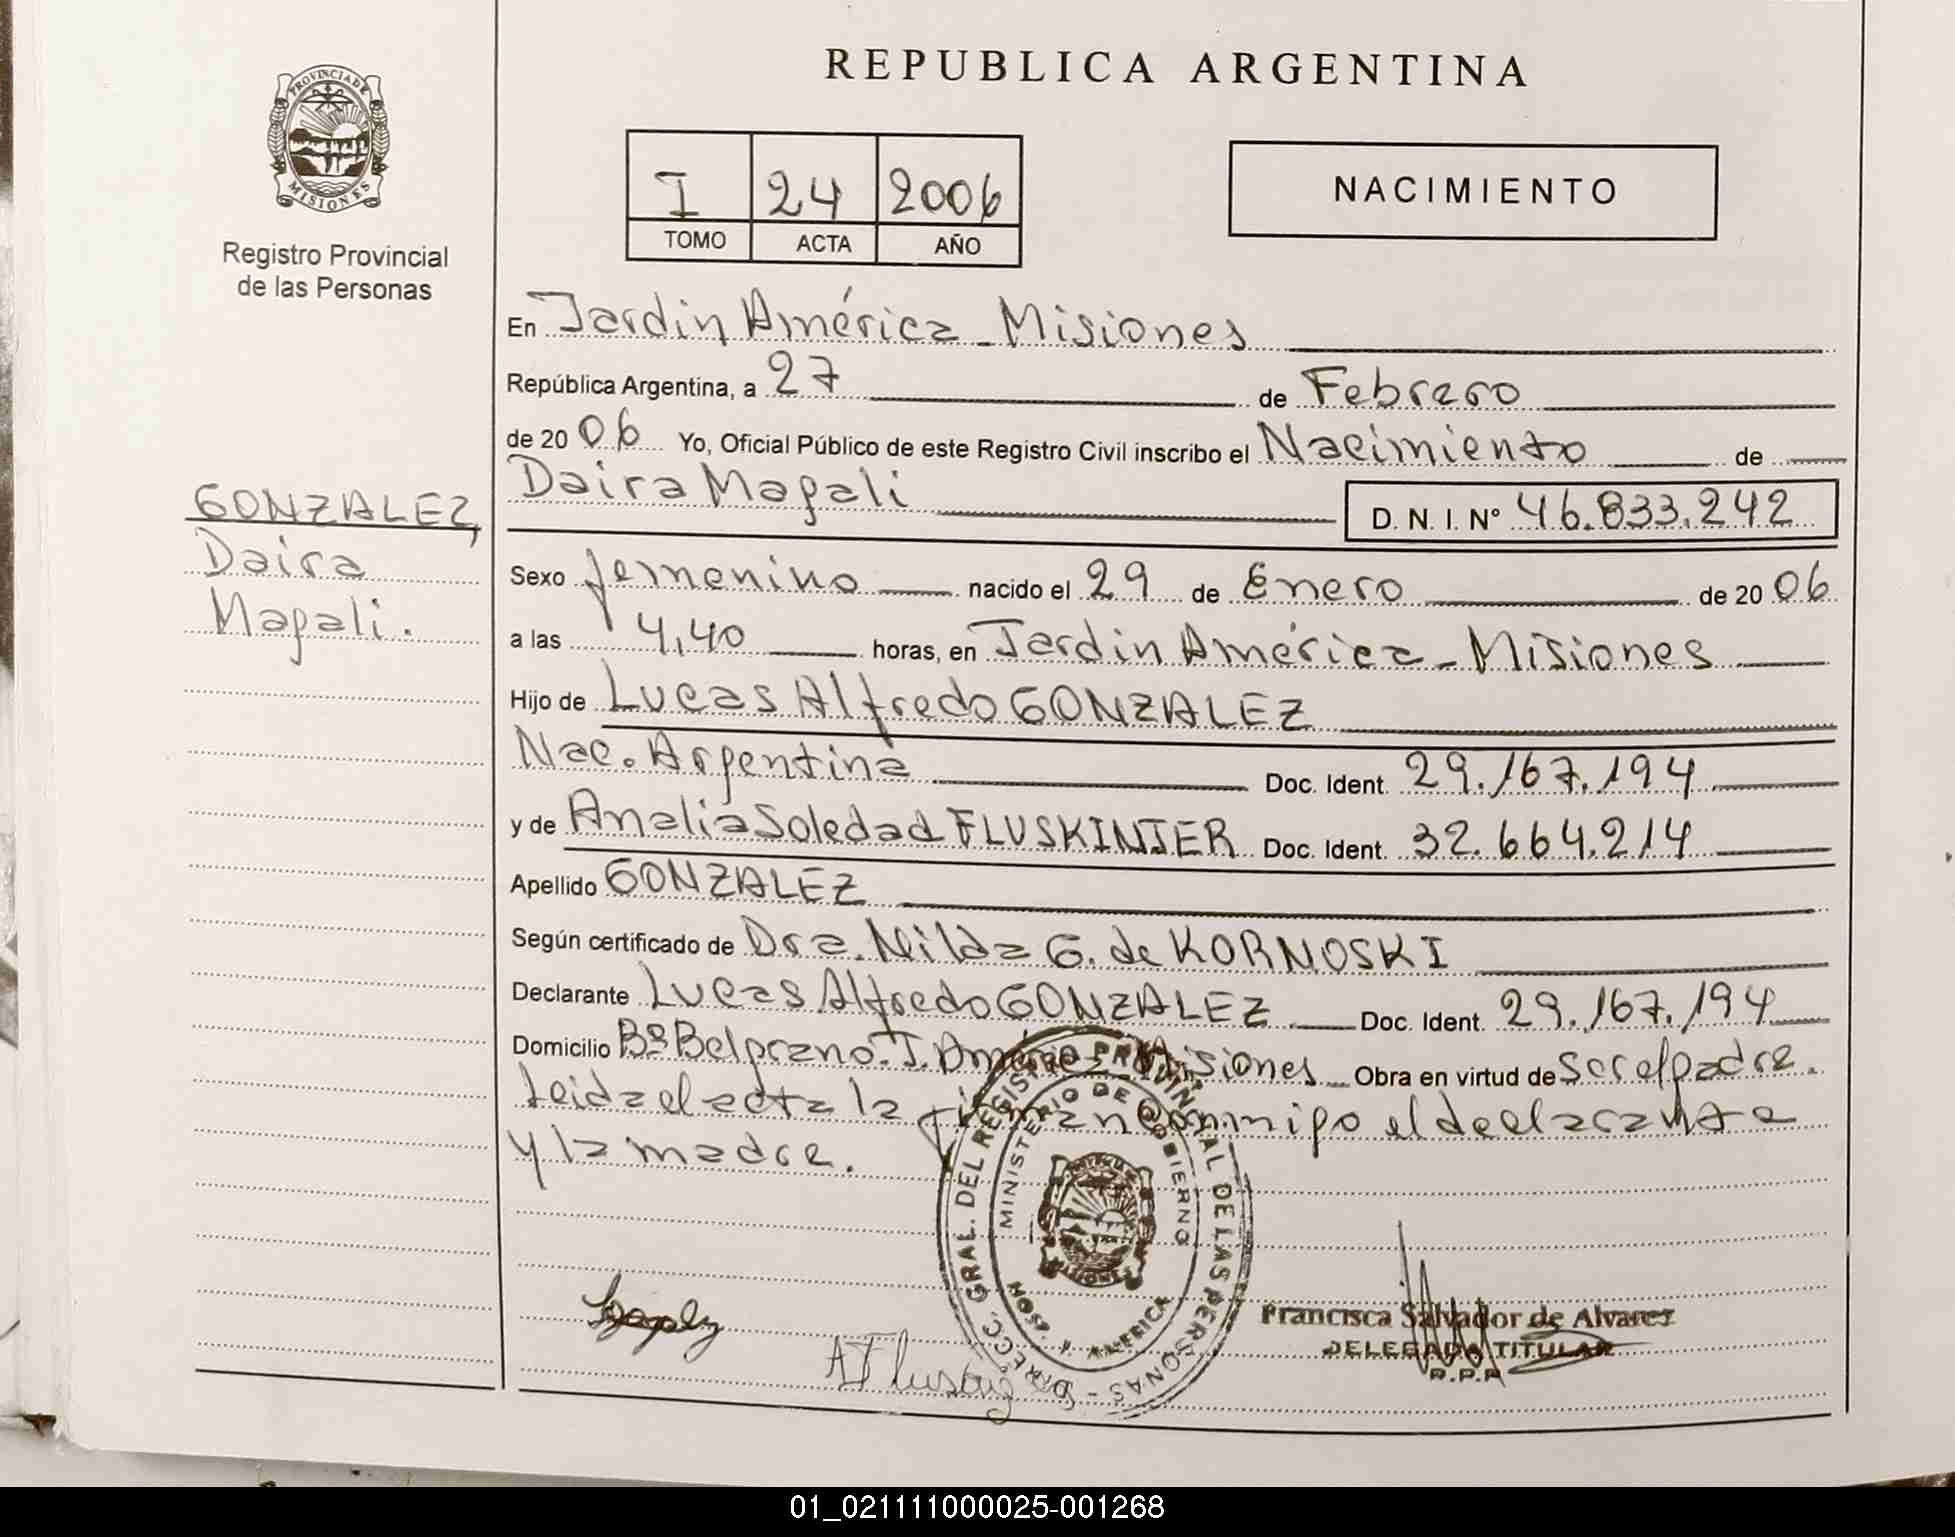 REPUBLICA ARGENTINA
PROVINCIA DE
MISIONES
Registro Provincial
de las Personas
I 24 2006
TOMO ACTA AÑO
NACIMIENTO
GONZALEZ,
Daira
Magali.
En Jardin América - Misiones
República Argentina, a 27 de Febrero
de 20 06 Yo, Oficial Público de este Registro Civil inscribo el Nacimiento de
Daira Magali D. N. I. N° 46.833.242
Sexo femenino nacido el 29 de Enero de 20 06
a las 4,40 horas, en Jardin América - Misiones
Hijo de Lucas Alfredo GONZALEZ
Nac. Argentina Doc. Ident. 29.167.194
y de Analia Soledad FLUSKINJER Doc. Ident. 32.664.214
Apellido GONZALEZ
Según certificado de Dra. Nilda G. de KORNOSKI
Declarante Lucas Alfredo GONZALEZ Doc. Ident. 29.167.194
Domicilio Bº Belgrano. J. América - Misiones Obra en virtud de Ser el padre.
Leida el acta la firman conmigo el declarante
y la madre.
DIRECC. GRAL. DEL REGISTRO PROVINCIAL DE LAS PERSONAS -
MINISTERIO DE GOBIERNO
HOSP. J. AMERICA
Francisca Salvador de Alvarez
DELEGADA TITULAR
R.P.P
01_021111000025-001268